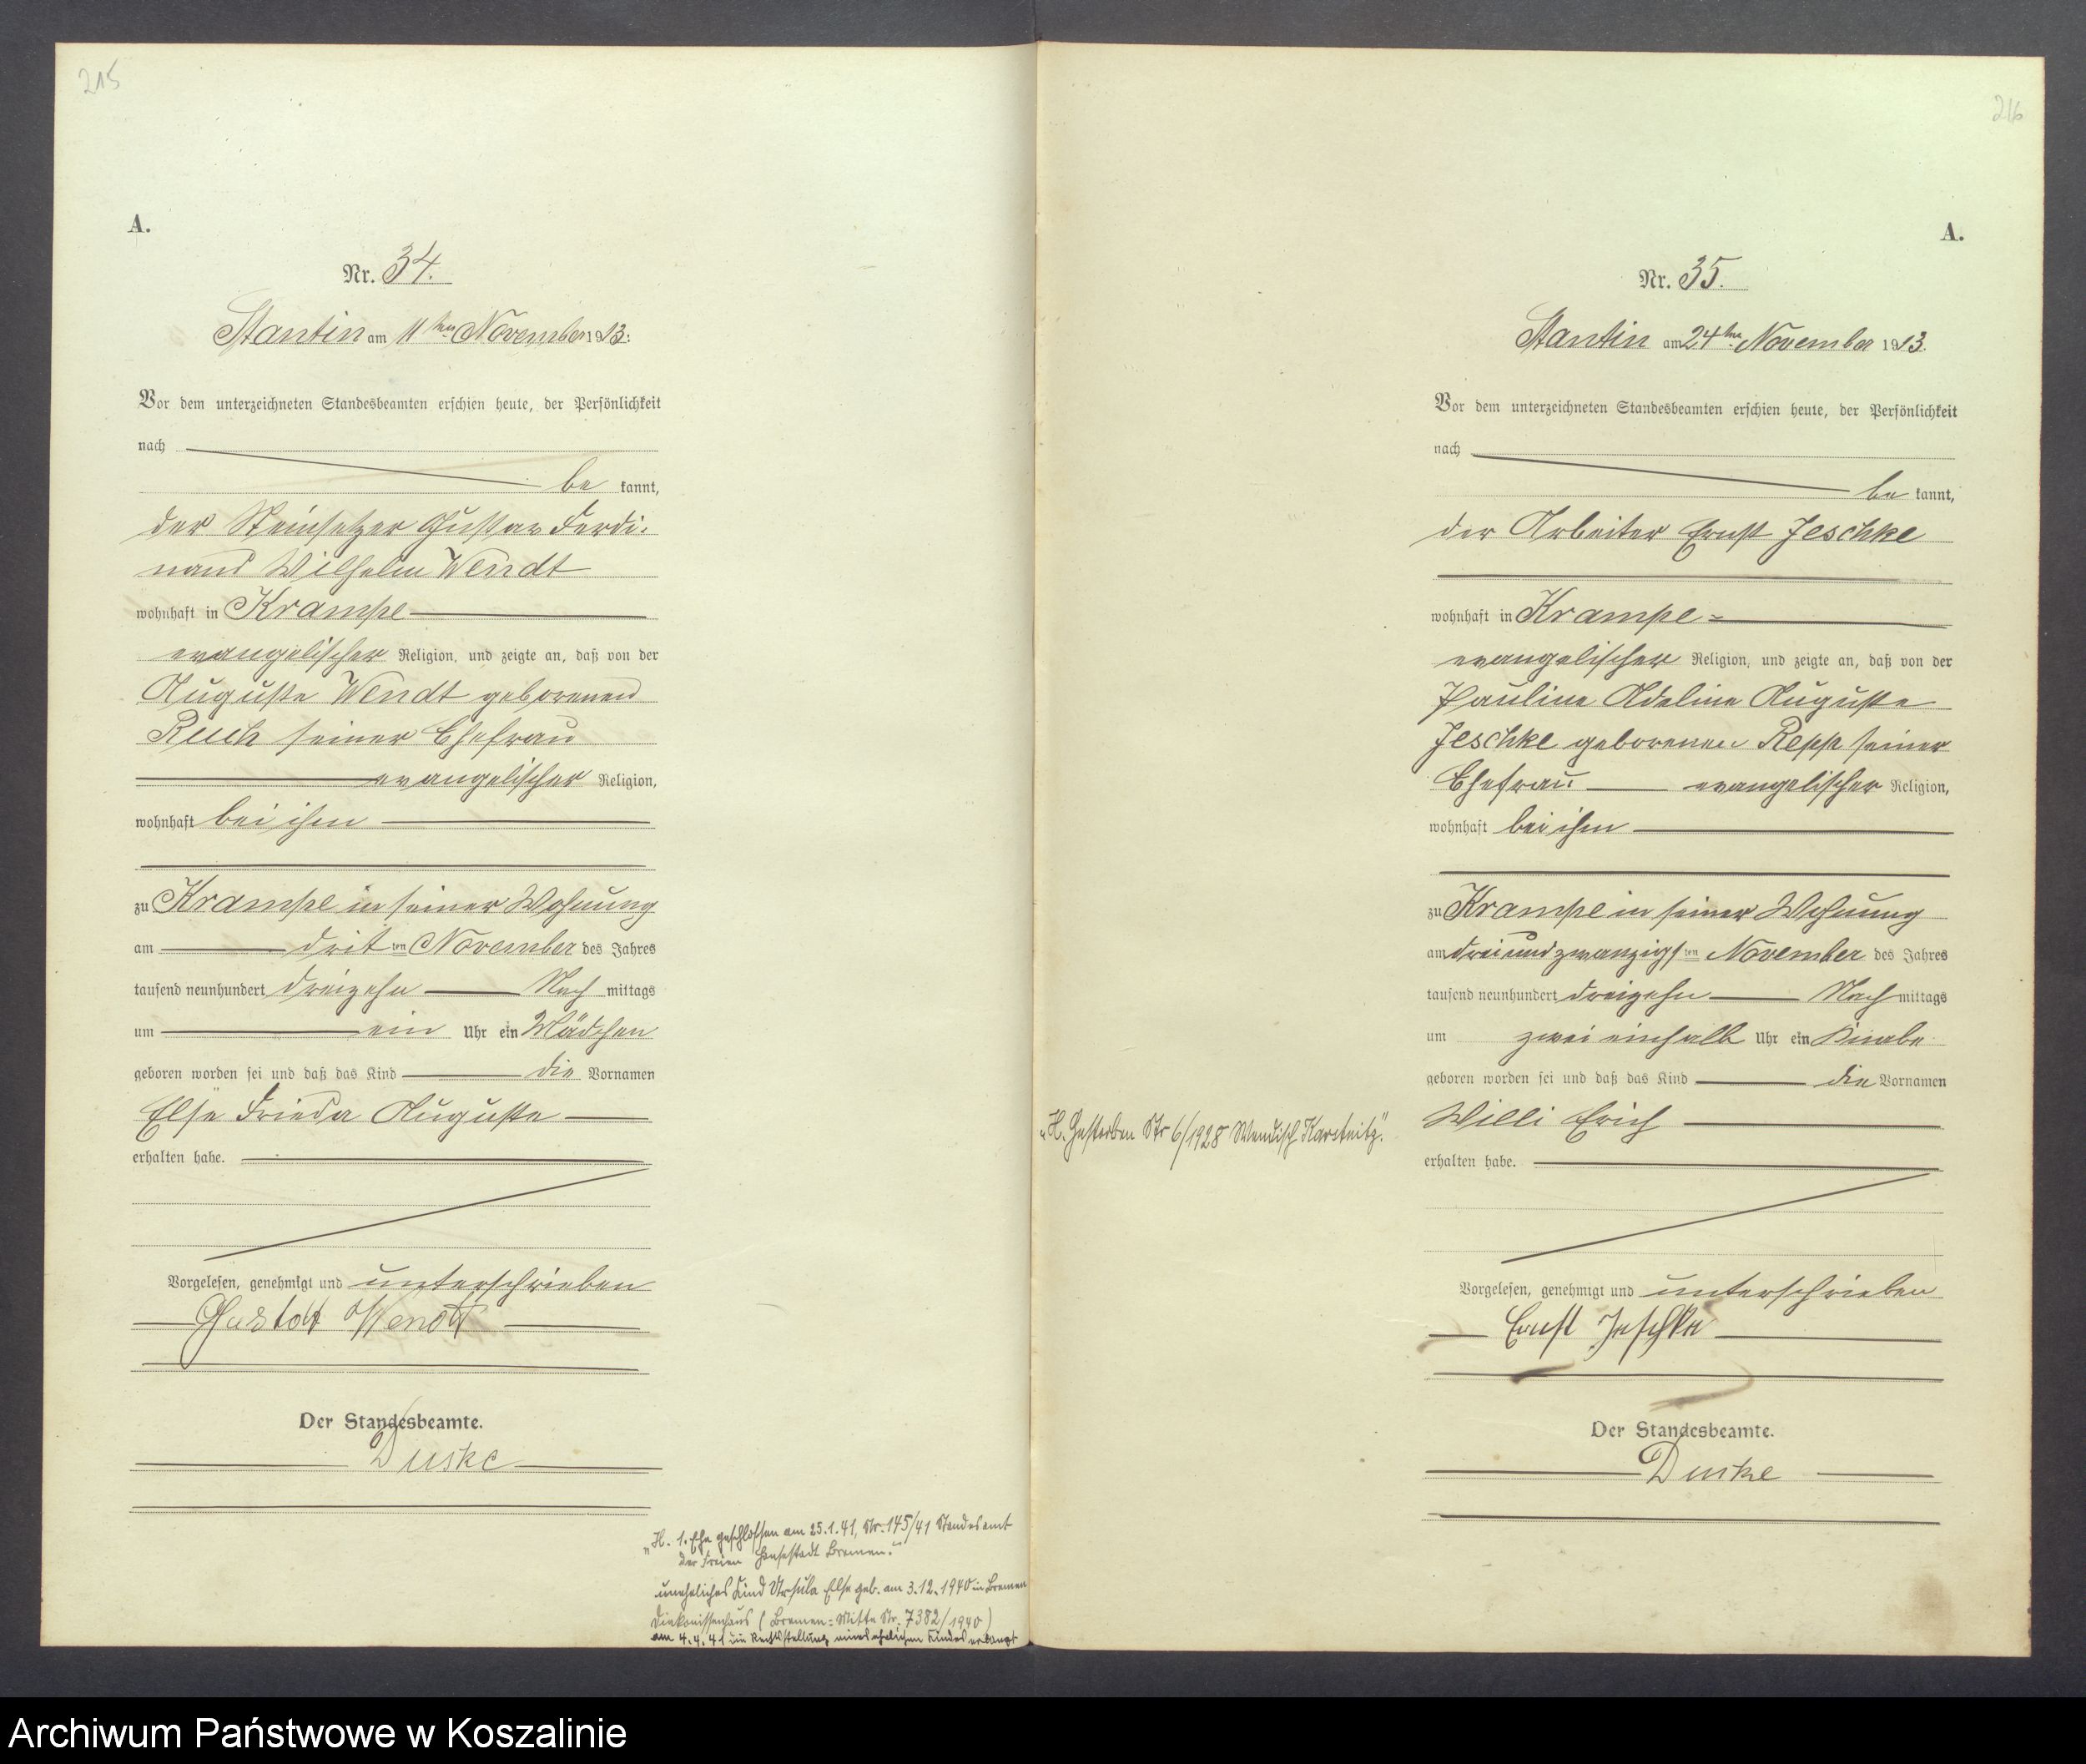 215
A.
Nr. 34.
Stantin am 11ten November 1913:
Vor dem unterzeichneten Standesbeamten erschien heute, der Persönlichkeit
nach
be kannt,
der Steinsetzer Gustav Ferdi:
nand Wilhelm Wendt
wohnhaft in Krampe
evangelischer Religion, und zeigte an, daß von der
Auguste Wendt geborenen
seiner Ehefrau
evangelischer Religion,
wohnhaft bei ihm
zu Krampe in seiner Wohnung
am drit ten November des Jahres
tausend neunhundert dreizehn Nach mittags
um ein Uhr ein Mädchen
geboren worden sei und daß das Kind die Vornamen
Else Frieda Auguste
erhalten habe.
Vorgelesen, genehmigt und unterschrieben
Wendt
Der Standesbeamte.
Duske
„H. 1. Ehe geschlossen am 25.1.41, Nr. 145/41 Standesamt
der Freien Hansestadt Bremen."
uneheliches Kind Ursula Else geb. am 3.12.1940 in Bremen
Diakonissenhaus (Bremen=Mitte Nr. 7382/1940)
am 4.4.41 die Rechtsstellung eines ehelichen Kindes erlangt
216
A.
Nr. 35.
Stantin am 24ten November 1913.
Vor dem unterzeichneten Standesbeamten erschien heute, der Persönlichkeit
nach
be kannt,
der Arbeiter Ernst Jeschke
wohnhaft in Krampe
evangelischer Religion, und zeigte an, daß von der
Pauline Adeline Auguste
Jeschke geborenen Repp seiner
Ehefrau evangelischer Religion,
wohnhaft bei ihm
zu Krampe in seiner Wohnung
am dreiundzwanzigs ten November des Jahres
tausend neunhundert dreizehn Nach mittags
um zwei einhalb Uhr ein Knabe
geboren worden sei und daß das Kind die Vornamen
Willi Erich
erhalten habe.
„H. Gestorben Nr 6/1928 Wendisch Karstnitz."
Vorgelesen, genehmigt und unterschrieben
Ernst Jeschke
Der Standesbeamte.
Duske
Archiwum Państwowe w Koszalinie